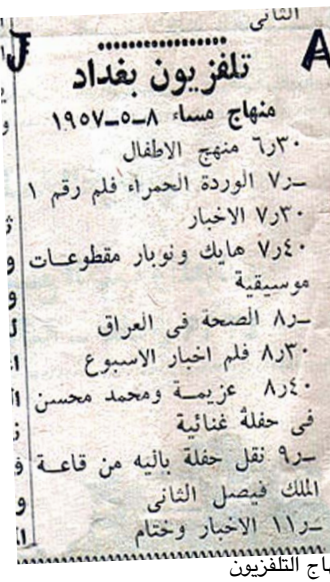 الثانى
J
A
تلفزيون بغداد
منهاج مساء ٨-٥-١٩٥٧
٦ر٣٠ منهج الاطفال
٧ر_ الوردة الحمراء فلم رقم ١
٧ر٣٠ الاخبار
٧ر٤٠ هايك ونوبار مقطوعات
موسيقية
٨ر_ الصحة فى العراق
٨ر٣٠ فلم اخبار الاسبوع
٨ر٤٠ عزيمة ومحمد محسن
فى حفلة غنائية
٩ر_ نقل حفلة باليه من قاعة
الملك فيصل الثانى
١١ر_ الاخبار وختام
هاج التلفزيون